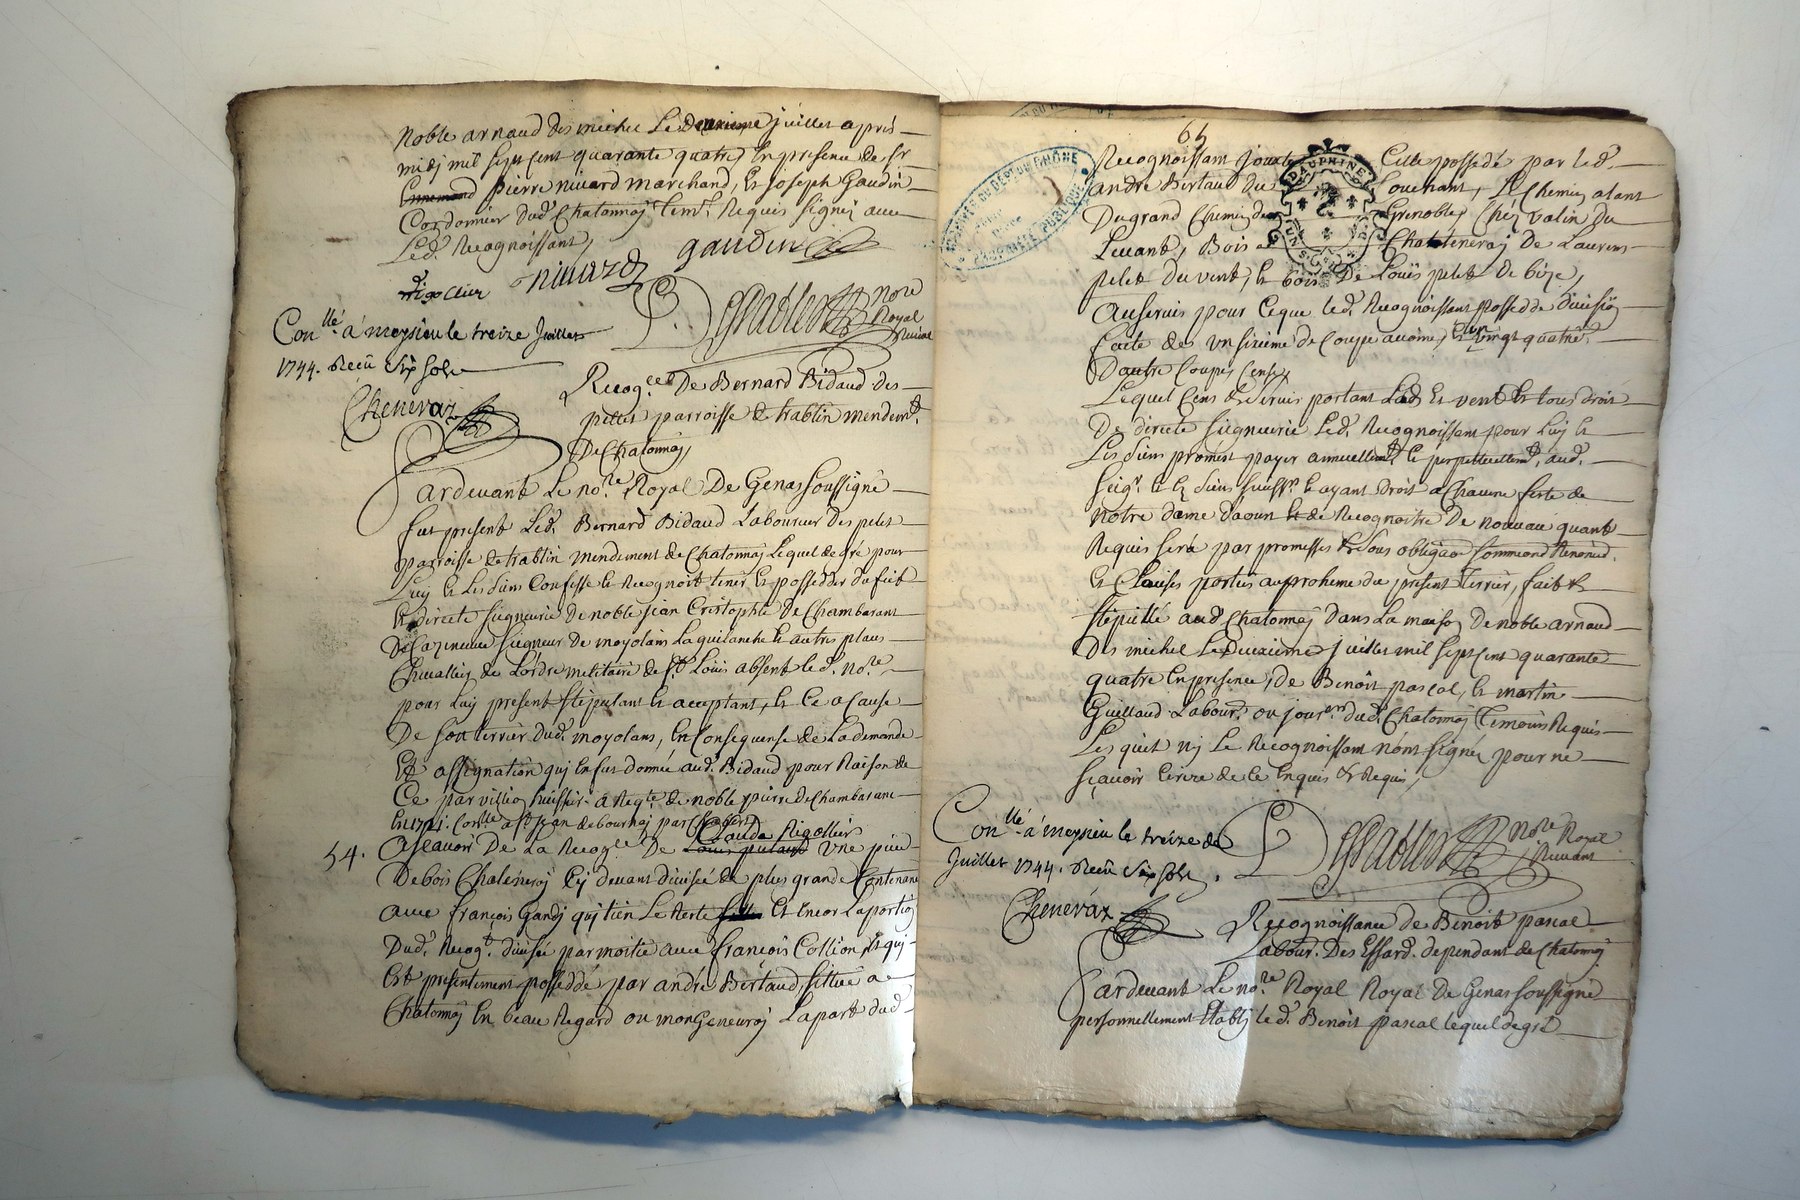 Noble arnaud des michel Le deuxieme juillet apres
midj mil sept cent quarante quatre, En presence de sr
pierre nivard marchand, Et joseph Gaudin
Cordonnier dud. Chatonnaj temt. Requis signéz avec
Led. Recognoissant,
Rigollier nivard gaudin
nore Royal
Conllé a meyzieu le treize Juillet
1744. Receu Six sols
Chenevaz
Recogce De Bernard Bidaud des
petits parroisse de trablin mendemt.
De Chatonnaj
Pardevant Le nore. Royal De Genas soussigné
fut present Led. Bernard Bidaud Laboureur des petit
parroisse de trablin mendement de Chatonnaj Lequel de gré pour
Luy Et Les siens Confesse Et Recognoit tenir Et possedder du fief
Et directe seigneurie de noble jean Cristophle de Chambarant
seigneur De moyolans La guilanche Et autres places
Chevallier de L'ordre militaire de St. Loüis absent led. nore
pour Luy present stipulant Et acceptant, Et Ce a Cause
De son terrier dud. moyolans, En Consequense de La demande
Et assignation quj En fut donnée aud. Bidaud pour Raison de
Ce par huissier a Reqte. de noble pierre de Chambarant
Claude Rigollier
54. Ascavoir De La Recogce De Une piece
De bois Chateneraj Cy devant divisée de plus grande Contenance
avec françois Gandj quj tien Le Reste Et Encor La portion
Dud. Recogt. divisée par moitié avec francois Collion Et quj
Est presentement posseddé par andré Bertaud, sittuée a
Chatonnaj En beau Regard ou mon Geneuraj La part dud.
65
ARCHIVES DU DEPT DU RHÔNE
PROPRIÉTÉ PUBLIQUE
DAUPHINE
Recognoissant Joute Celle possedé par led.
andré Bertaud du Couchant, Le Chemin alant
Du grand Chemin de Grenoble Chez Valin du
Levant, Bois Chateneraj De Laurens
petit du vent, Et bois De Loüis petit de bize,
Au servis pour Ce que led. Recognoissant possedde division
faite des un sixieme de Coupe avoine, Et un vingt quatre.
D'autre Coupe, Cense,
Lequel Cens Et servis portant Lods Et vent Et tous droit
De directe seigneurie Led. Recognoissant pour Luy Et
Les siens promest payer annuellemt. Et perpettuellemt. aud.
seigr. Et Les siens Et ayant droit a Chacune feste de
notre dame daoun Et de Recognoitre De nouveau quant
Requis sera par promesses Et sous obligaon. soummaond Renonaon.
Et Clauses porties au proheme du present terrier, fait Et
stipullé aud Chatonnaj dans La maison De noble arnaud
Des michel Le Deuxieme juillet mil sept cent quarante
quatre En presence, de Benoit pascal, Et martin
Guillaud Labourr. ou jourer dud. Chatonnaj temoins Requis
Lesquel nj Le Recognoissam n'ont signer pour ne
sçavoir Ecrire de ce Enquis Et Requis,
nore Royal
Conllé a meyzieu le treize de
Juillet 1744. Receu Six sols.
Chenevaz
Recognoissance de Benoit pascal
Labour. Des Essard. dependant de Chatonnaj
Pardevant Le nore Royal Royal De Genas soussigné
personnellement Etablj led. Benoit pascal lequel de gré